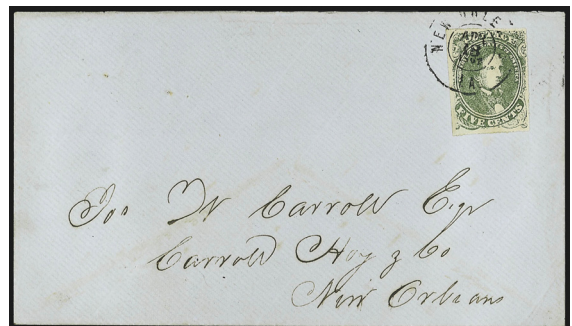 NEW ORLE
LA
FIVE CENTS
Jos W Carroll Esqr
Carroll Hoy & Co
New Orleans